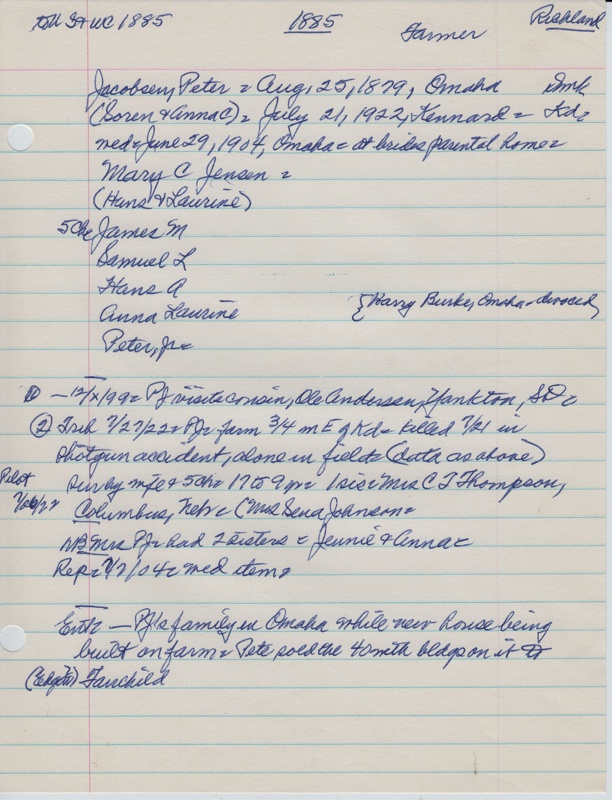 1885
1885
Farmer
Richland
Jacobsen, Peter = Aug. 25, 1879, Omaha Dmk
(Soren & Anna C) = July 21, 1922, Kennard = Kd=
med = June 29, 1904, Omaha = at brides parental home =
Mary C Jensen =
(Hans & Laurine)
5 Ch= James M
Samuel L
Hans A
Anna Laurine {Harry Burke, Omaha - divorced}
Peter, Jr=
① - 12/x/99 = PJ visits cousin, Ole Andersen, Yankton, SD=
② Trib 7/27/22 = PJ= farm 3/4 m E of Kd= killed 7/21 in
shotgun accident, alone in field = (data as above)
Pilot 7/26/22
Surv by wife & 5 ch = 17 to 9 yr = 1 sis = Mrs C T Thompson,
Columbus, Nebr = (Mrs Sena Johnson =
NB Mrs PJ= had 2 sisters = Jennie & Anna =
Rep = 7/7/04 = wed item=
- PJ's family in Omaha while new house being
built on farm = Pete sold the 40 with bldgs on it to
Fairchild